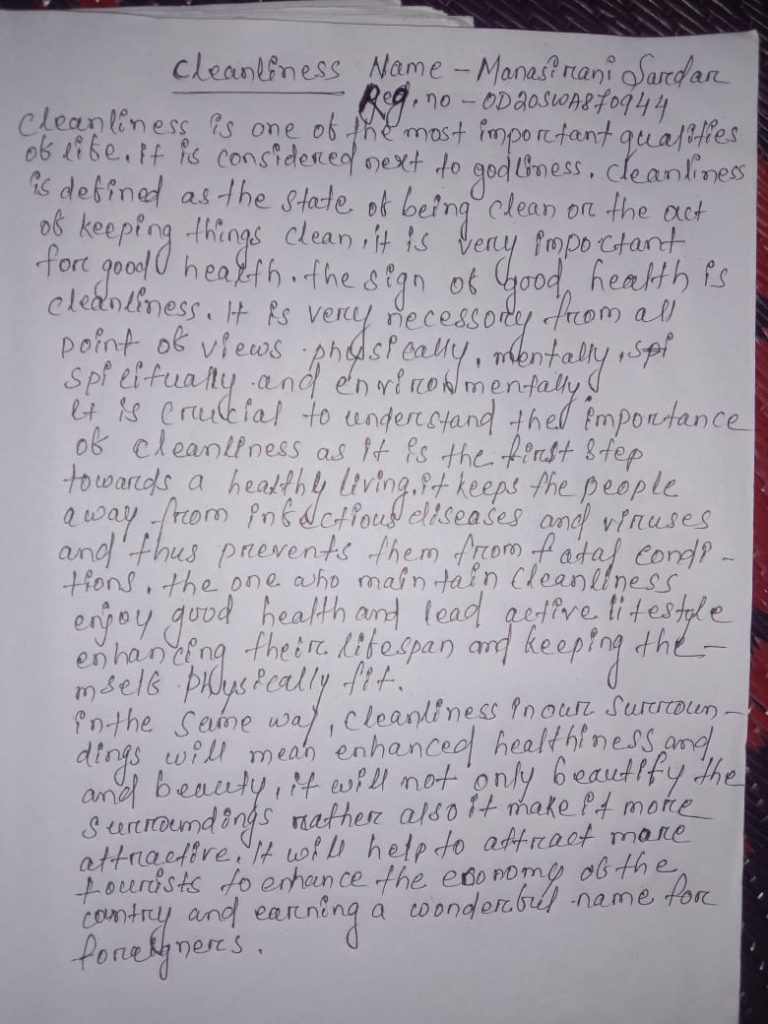 Cleanliness Name - Manasirani Sardar
Reg. no - OD20SWA870944
Cleanliness is one of the most important qualities
of life. it is considered next to godliness. cleanliness
is defined as the state of being clean or the act
of keeping things clean, it is very important
for good health. the sign of good health is
cleanliness. It is very necessory from all
point of views physically, mentally, spi
spiritually and environmentally
It is crucial to understand the importance
of cleanliness as it is the first step
towards a healthy living. it keeps the people
away from infectious diseases and viruses
and thus prevents them from fatal condi-
tions. the one who maintain cleanliness
enjoy good health and lead active lifestyle
enhancing their lifespan and keeping the-
mself physically fit.
in the same way, cleanliness in our surroun-
dings will mean enhanced healthiness and
and beauty, it will not only beautify the
surroundings rather also it make it more
attractive. It will help to attract more
tourists to enhance the economy of the
cantry and earning a wonderful name for
foreigners.